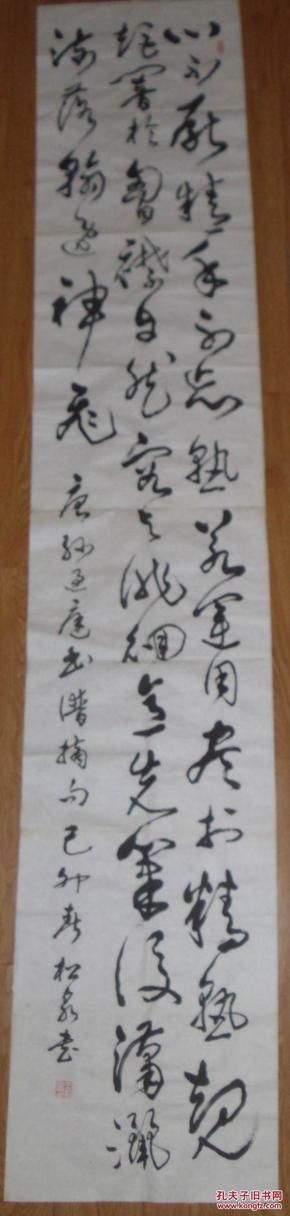 心不厭精手不忘熟若運用盡於精熟規
矩闇於胸襟自然容與徘徊意先筆後瀟灑
流落翰逸神飛 唐孫過庭書譜摘句己卯春松泉書
孔夫子旧书网
www.kongfz.com